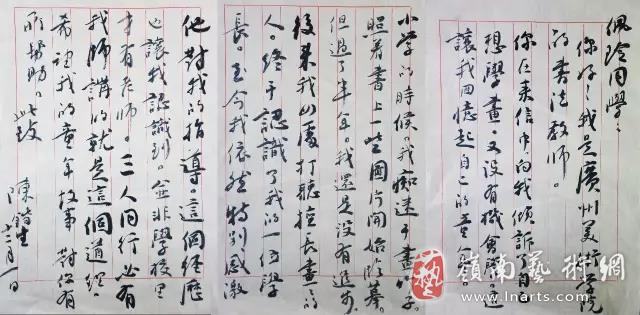 佩玲同學：
你好！我是廣州美術學院
的书法教师。
你在来信中向我傾訴了自己
想學畫，又没有機會學。這
讓我回憶起自己的童年。
小学的時候，我痴迷于畫竹子。
照着書上一些圖片開始臨摹。
但過了半年。我還是没有進步。
後来我四處打聽擅长畫的
人。終于認識了我的一位學
長。至今我依然特别感激
他對我的指導。這個經歷
也讓我認識到。並非學校里
才有老师。三人同行必有
我師講的就是這個道理。
希望我的童年故事對你有
所幫助。此致
陳
十二月一日
藝
嶺南藝術網
www.lnarts.com